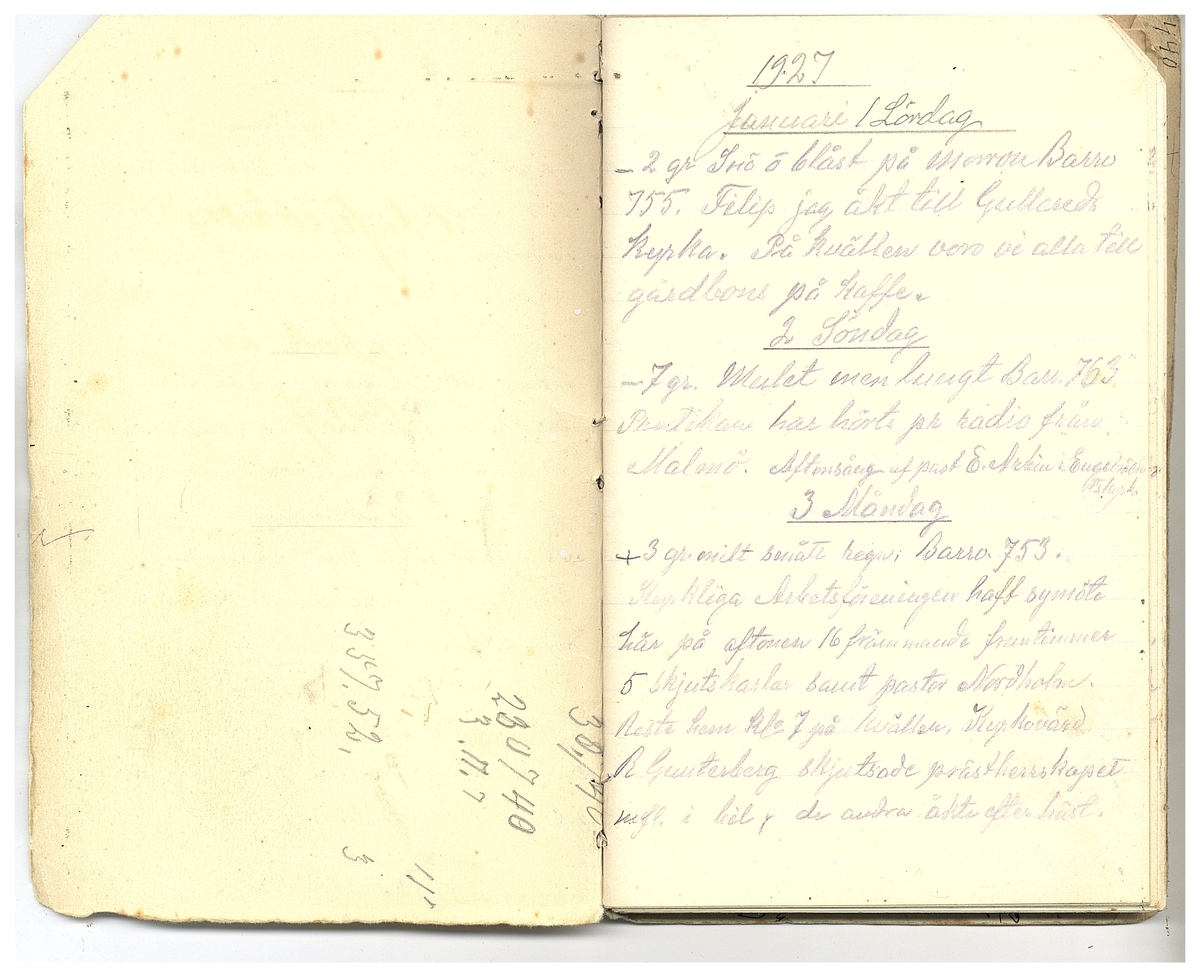 337.52.
3
11
2807 40
3.11.?
38,40
1927
Januari 1 Lördag
- 2 gr Snö ö blåst på morron Barro
755. Filip jag åkt till Gullereds
kyrka. På kvällen voro vi alla till
gårdbons på kaffe.
2 Söndag
- 7 gr. Mulet men lungt Barr. 763
har hört pr radio från
Malmö. Aftonsång af past E.
kyrk.
3 Måndag
+ 3 gr. milt smått regn; Barro. 753.
Kyrkliga Arbetsföreningen haft symöte
här på aftonen 16 främmande fruntimmer
5 skjutskarlar samt pastor Nordholm.
Reste hem kl. 7 på kvällen. Kyrkovärd
R Gunterberg skjutsade prästherrskapet
m fl. i bil, de andra åkte efter häst.